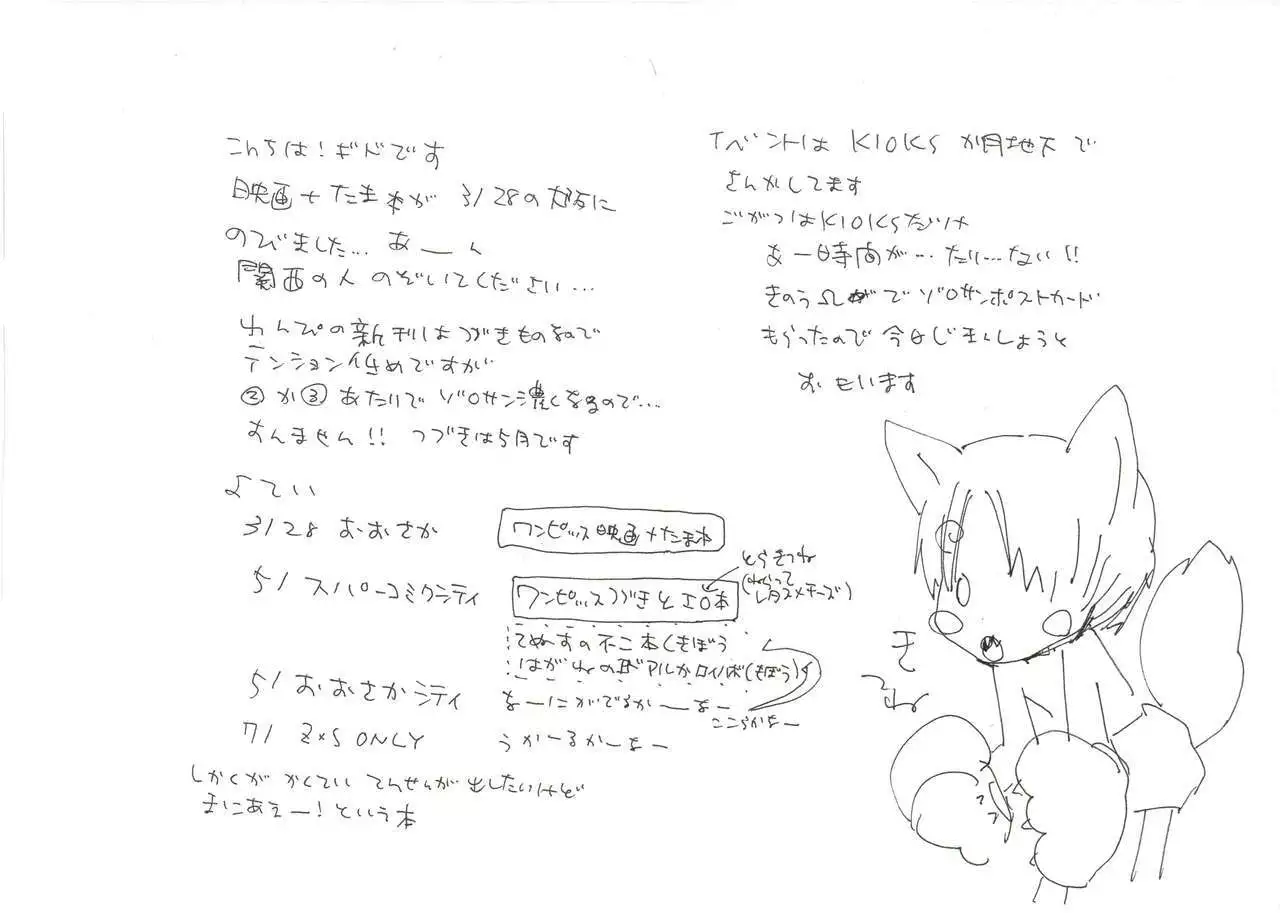 こんちは!ギドです
映画+たま本が 3/28の大阪に
のびました… あーん
関西の人 のぞいてください…
わんぴの新刊はつづきものなので
テンション低めですが
② か ③ あたりで ゾロサン濃くなるので…
すんません!! つづきは5月です
よてい
3/28 おおさか
ワンピッス映画+たま本
5/ スパーコミクシティ
ワンピッスつづきとエロ本
とらきつね
(ねらって
レタスメチーズ)
てぬすの不二本(きぼう
はがねの エドアルかロイハボ(きぼう)
5/ おおさかシティ
なーにがでるかーなー
ここらかなー
7/ Z×S ONLY
うかーるかーなー
しかくが かくてい てんせんが 出したいけど
まにあえー!という本
イベントは KIOKS が月地下で
さんかしてます
ごがつはKIOKSだけ
あー時間が…たり…ない!!
きのう で ゾロサンポストカード
もらったので 今日じまんしようと
おもいます
きつね